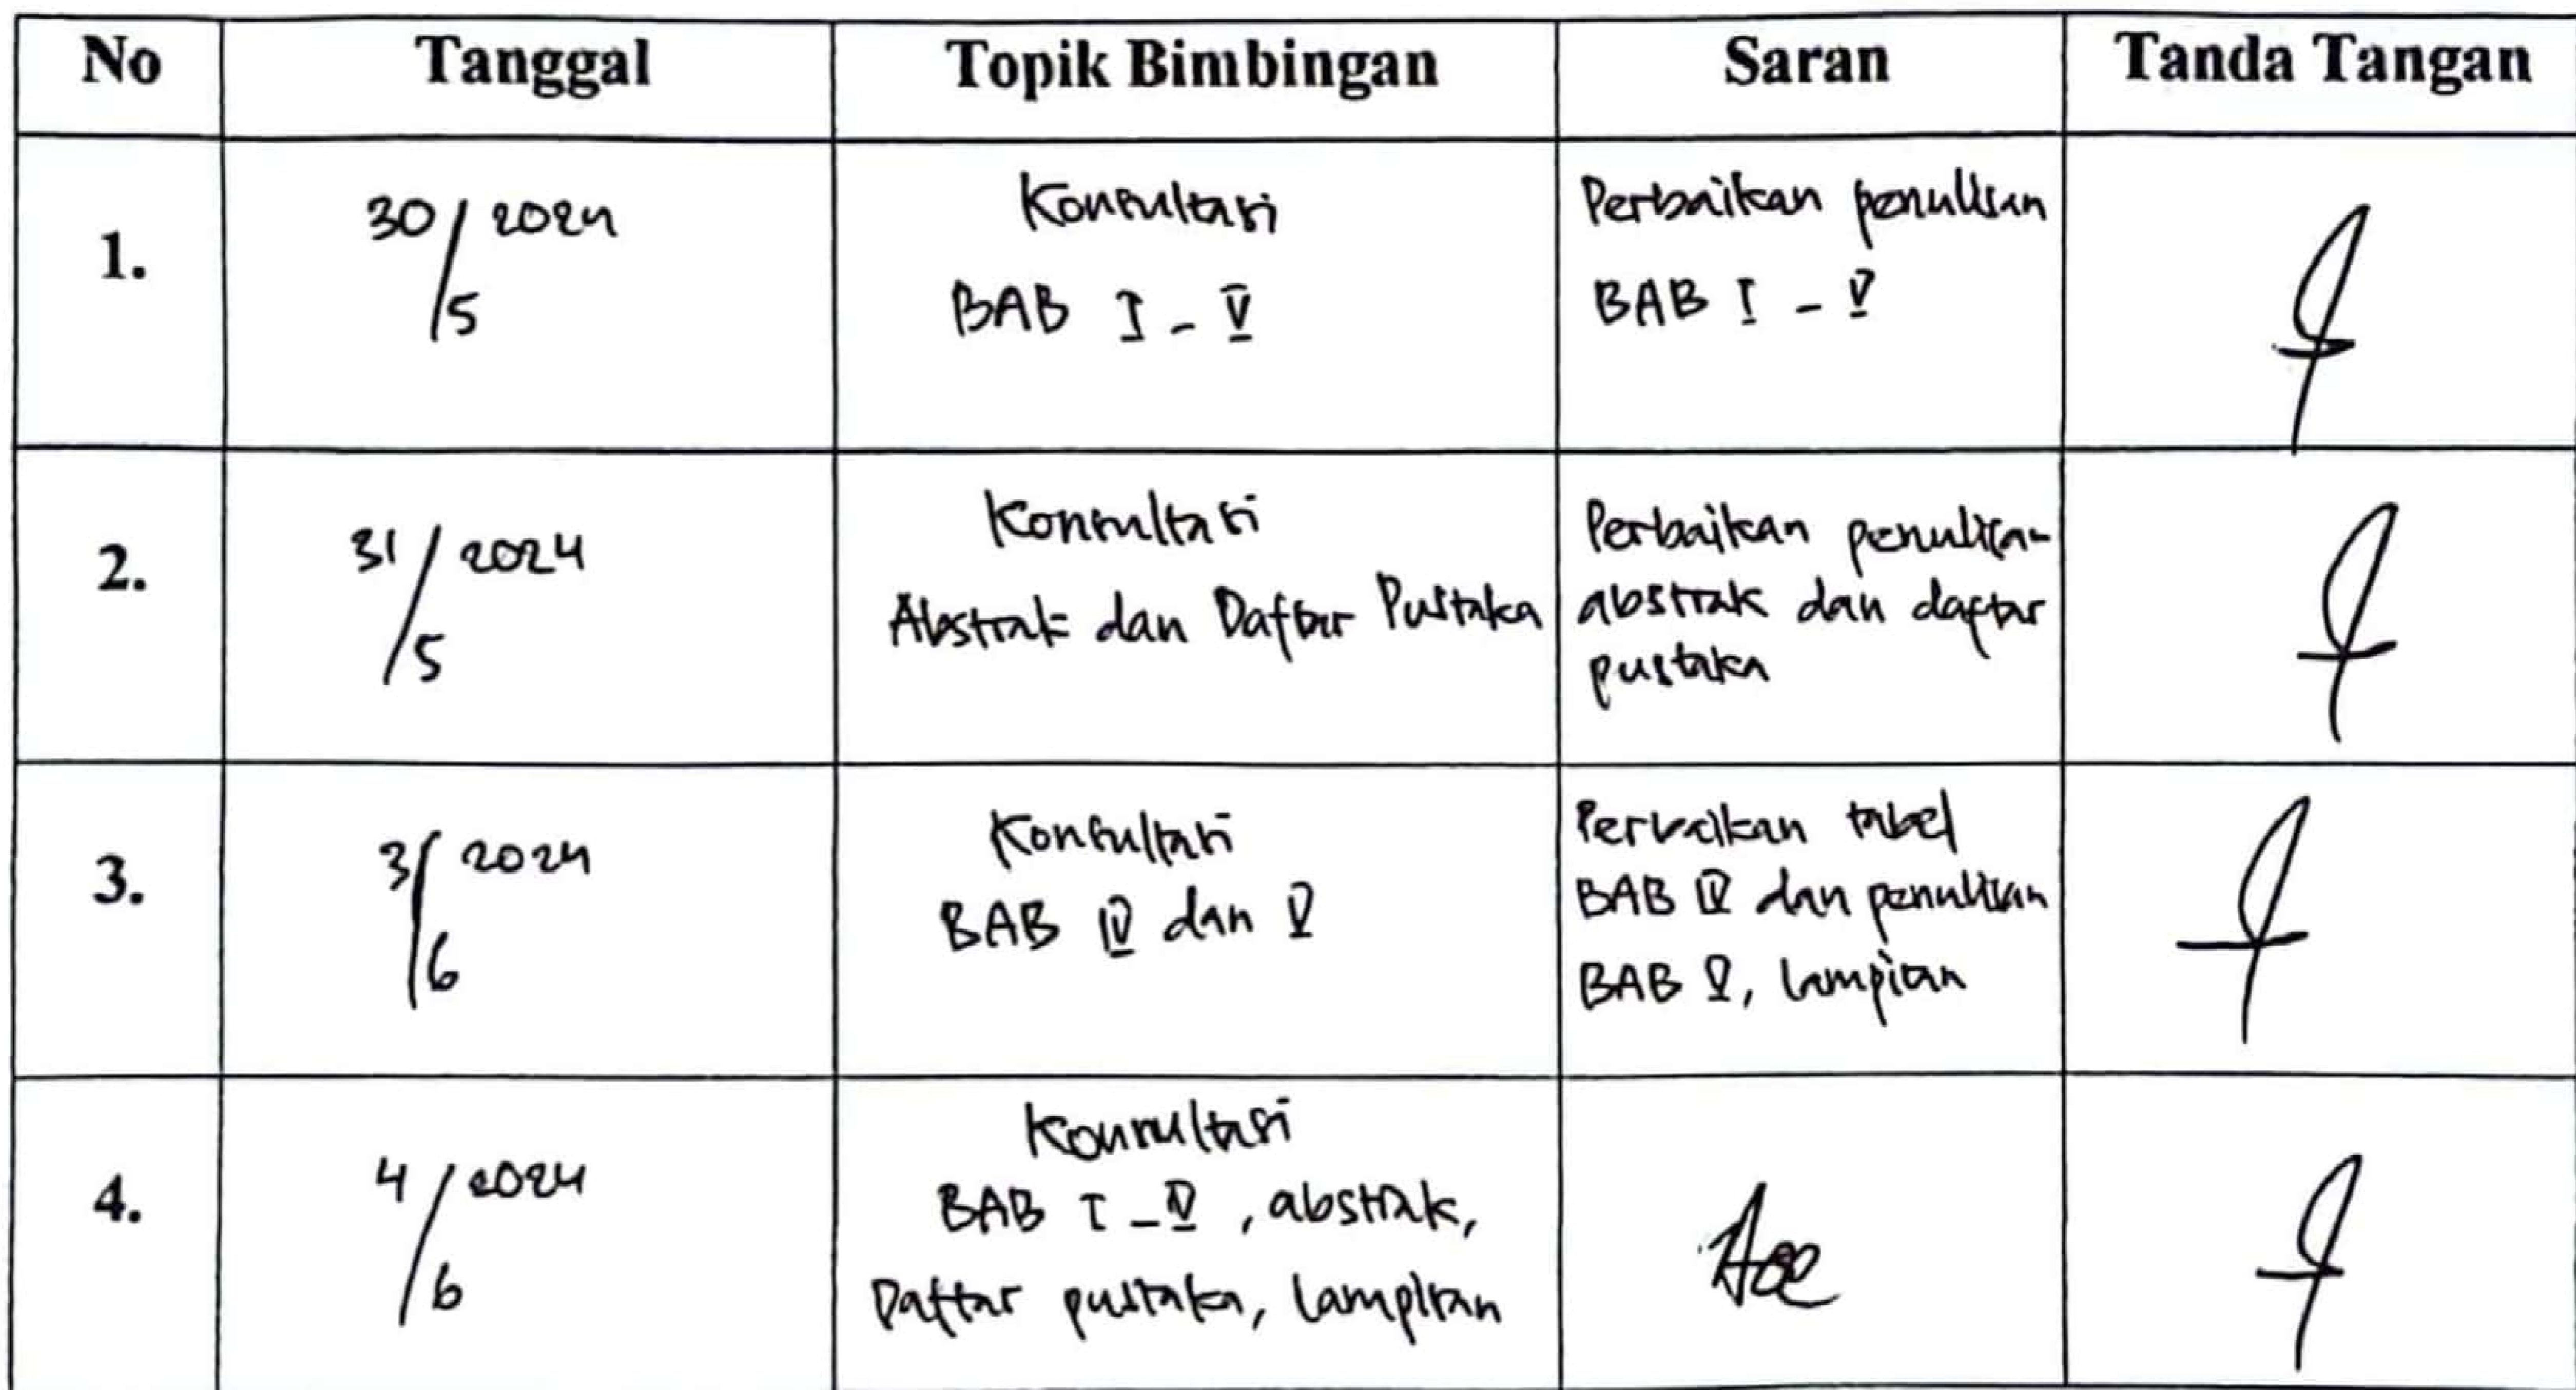 No Tanggal Topik Bimbingan Saran Tanda Tangan
1.
30/5 2024
Konsultasi
BAB I - V
Perbaikan penulisan
BAB I - V
2.
31/5 2024
Konsultasi
Abstrak dan Daftar Pustaka
Perbaikan penulisan
abstrak dan daftar
pustaka
3.
3/6 2024
Konsultasi
BAB IV dan V
Perbaikan tabel
BAB IV dan penulisan
BAB V, lampiran
4.
4/6 2024
Konsultasi
BAB I - V, abstrak,
Daftar pustaka, lampiran
Acc